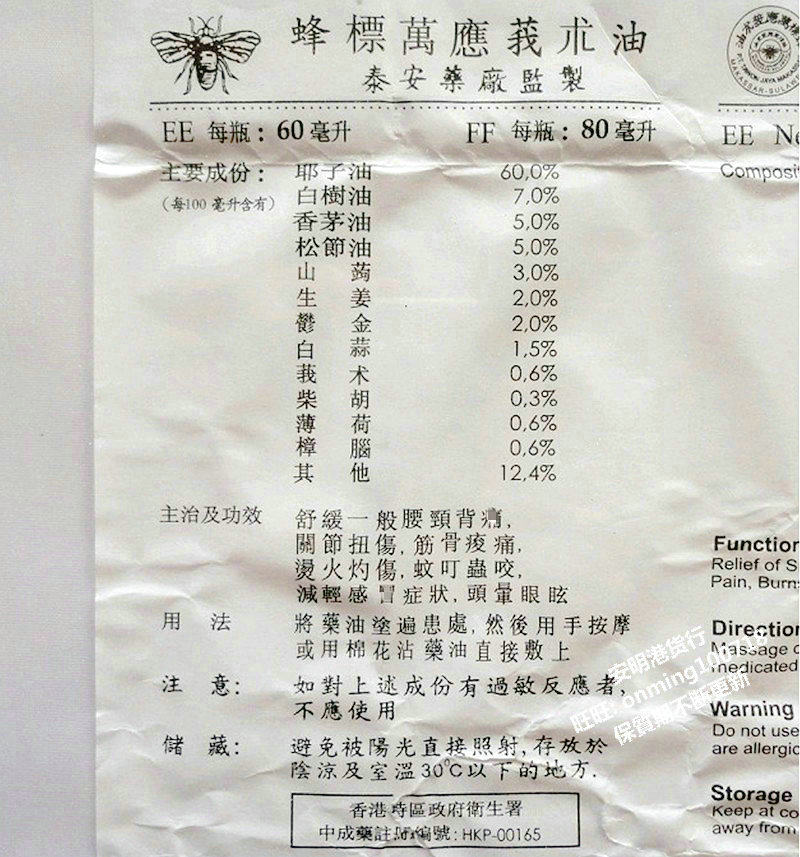 蜂標萬應莪朮油
泰安藥廠監製
EE 每瓶：60毫升 FF 每瓶：80毫升
主要成份： 耶子油 60,0%
（每100 毫升含有） 白樹油 7,0%
香茅油 5,0%
松節油 5,0%
山蒟 3,0%
生姜 2,0%
鬱金 2,0%
白蒜 1,5%
莪术 0,6%
柴胡 0,3%
薄荷 0,6%
樟腦 0,6%
其他 12,4%
主治及功效 舒緩一般腰頸背痛,
關節扭傷, 筋骨痠痛,
燙火灼傷, 蚊叮蟲咬,
減輕感冒症狀, 頭暈眼眩
用法 將藥油塗遍患處, 然後用手按摩
或用棉花沾藥油直接敷上
注意: 如對上述成份有過敏反應者,
不應使用
儲藏: 避免被陽光直接照射, 存放於
陰涼及室溫30°C以下的地方.
香港特區政府衛生署
中成藥註冊編號: HKP-00165
MAKASSAR-SULAW
EE
Composi
Function
Relief of S
Pain, Burn
Direction
Massage
medicated
Warning
Do not use
are allergic
Storage
Keep at co
away from
安明港货行
旺旺: onming
保質期不斷更新